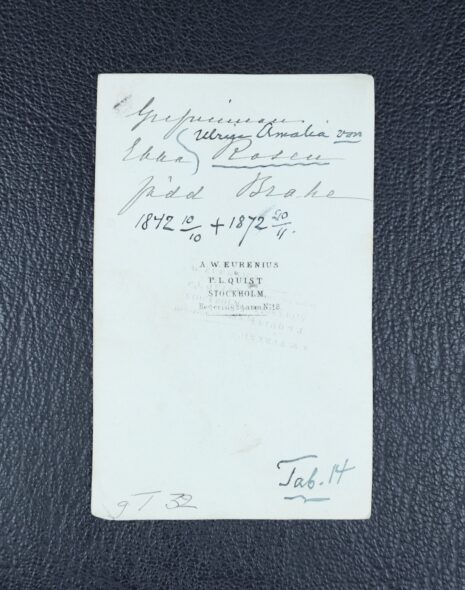 Grefvinnan
Ulrica Amalia von
Ebba) Rosen
född Brahe
1842 10/10 + 1872 20/11.
A. W. EURENIUS
&
P. L. QUIST
STOCKHOLM.
Regeringsgatan N:18.
Tab. 14
gT 32